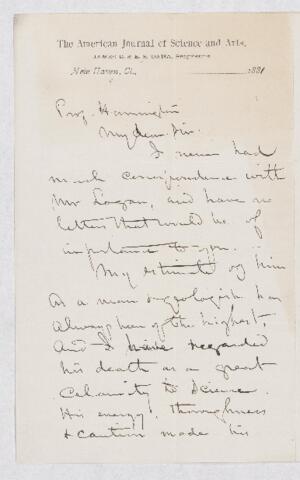 The American Journal of Science and Arts.
JAMES D. & E. S. DANA, Proprietors
New Haven, Ct., 1881
Prof. Harrington
My dear Sir.
I never had
much correspondence with
Mr Logan, and have no
letters that would be of
importance to you.
My estimate of him
as a man & geologist has
always been of the highest,
and I have regarded
his death as a great
calamity to Science.
His energy, thoroughness
& caution made his